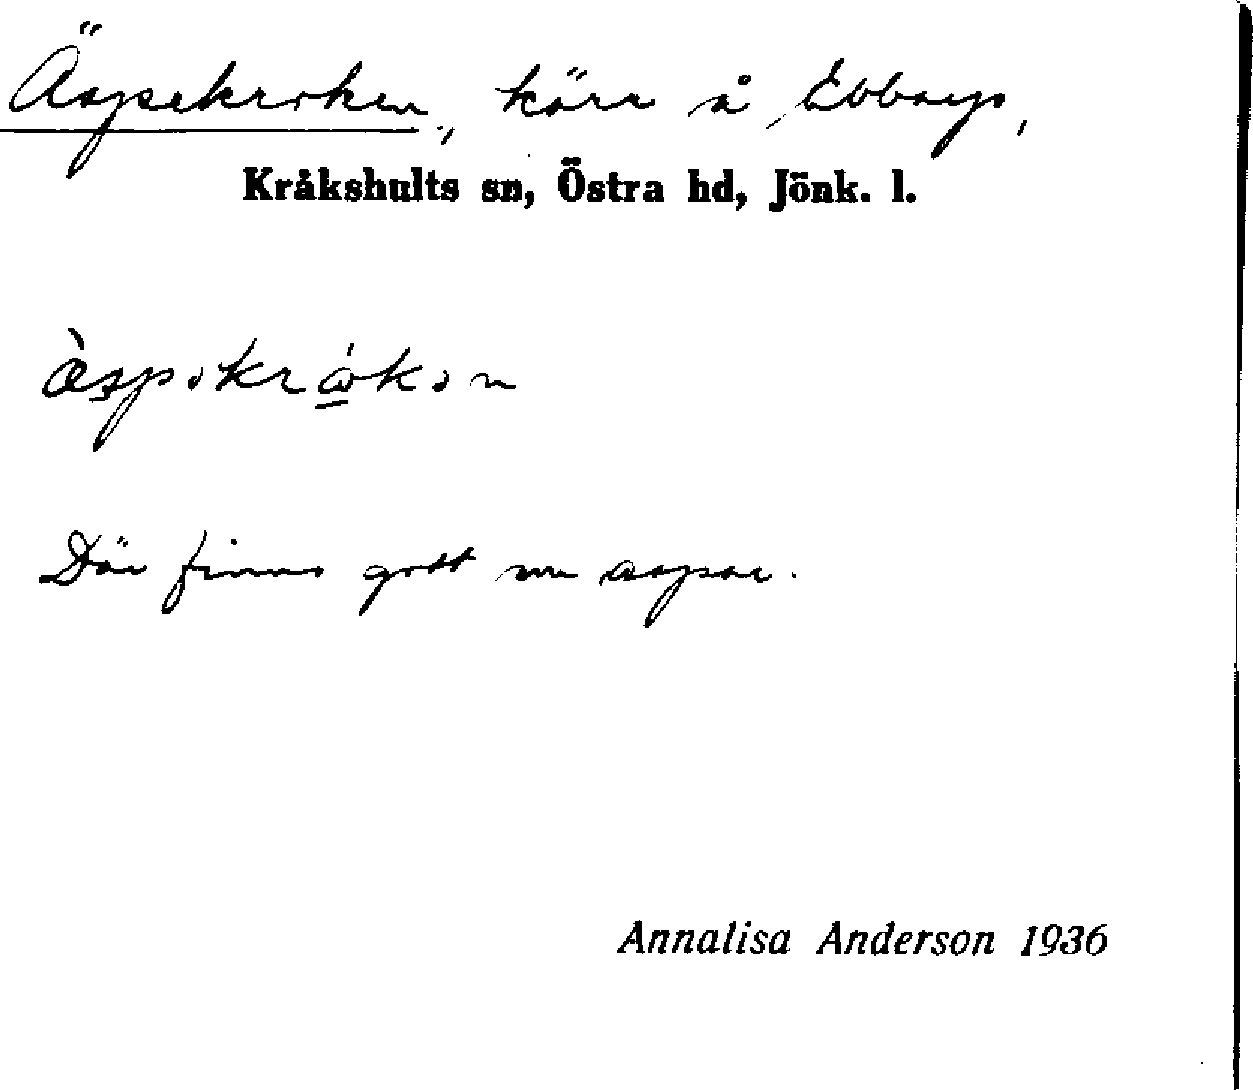 Äspekroken, kärr å Ebbarp,
Kråkshults sn, Östra hd, Jönk. l.
Där finns gott om aspar.
Annalisa Anderson 1936